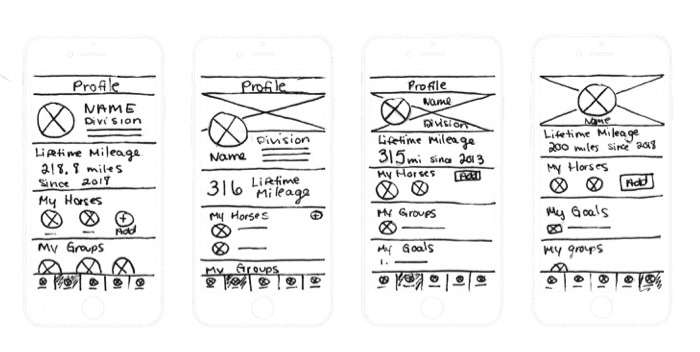 Profile
NAME
Division
Lifetime Mileage
218.8 miles
Since 2018
My Horses
Add
My Groups
Profile
Division
Name
316 Lifetime
Mileage
My Horses
My Groups
Profile
Name
Division
Lifetime Mileage
315mi since 2013
My Horses Add
My Groups
My Goals
1.
Name
Lifetime Mileage
200 miles since 2018
My Horses
Add
My Goals
My groups